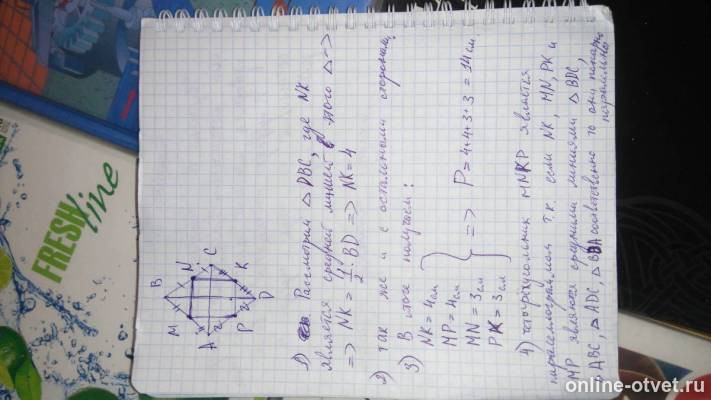 B
M
N
A
C
P
K
D
1) Рассмотрим △ DBC, где NK
является средней линией этого △ =>
=> NK = 1/2 · BD => NK = 4
2) так же и с остальными сторонами,
3) В итоге получаем:
NK = 4см
MP = 4см
MN = 3см
PK = 3см
=> P = 4+4+3+3 = 14см.
4) четырехугольник MNKP является
параллелограммом т.к. если NK, MN, PK и
MP являются средними линиями △ BDC,
△ ABC, △ ADC, △ BDA соответственно то они попарно
параллельны
FRESH
line
online-otvet.ru